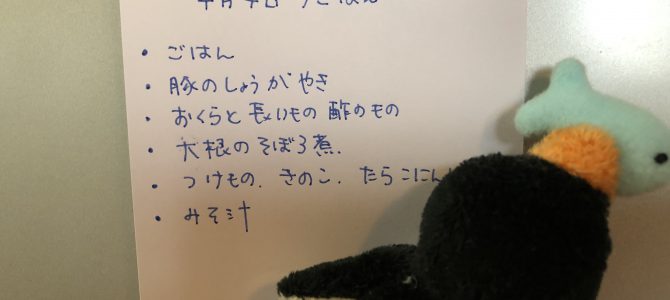 ごはん
・ごはん
・豚のしょうがやき
・おくらと長いもの酢のもの
・大根のそぼろ煮.
・つけもの. きのこ. たらこにん
・みそ汁